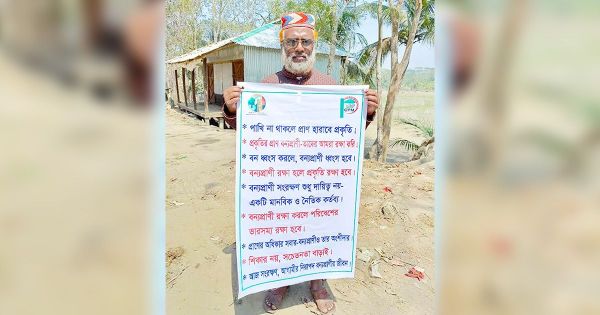 * পাখি না থাকলে প্রাণ হারাবে প্রকৃতি।
* প্রকৃতির প্রাণ বন্যপ্রাণী-তাদের আমরা রক্ষা করি।
* বন ধ্বংস করলে, বন্যপ্রাণী ধ্বংস হবে।
* বন্যপ্রাণী রক্ষা হলে প্রকৃতি রক্ষা হবে।
* বন্যপ্রাণী সংরক্ষণ শুধু দায়িত্ব নয়-
একটি মানবিক ও নৈতিক কর্তব্য।
* বন্যপ্রাণী রক্ষা করলে পরিবেশের
ভারসাম্য রক্ষা হবে।
* প্রাণের অধিকার সবার-বন্যপ্রাণীও তার অংশীদার।
* শিকার নয়, সচেতনতা বাড়াই।
* আজ সংরক্ষণ, আগামীর নিরাপদ বন্যপ্রাণীর জীবন।